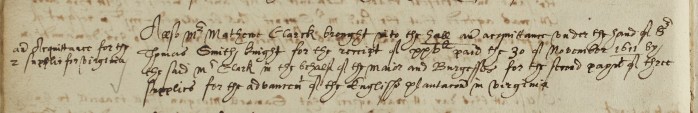 Also Mr Mathewe Clarck brought into the hall an acquittance under the hand of Sr
Thomas Smith knight for the receipt of xxvli paid the 30 of November 1611 by
the said Mr Clark in the behalf of the maior and Burgesses for the second paymt of three
supplies for the advancemt of the English plantacon in virginia
an Acquittance for the
2 supplie for virginia